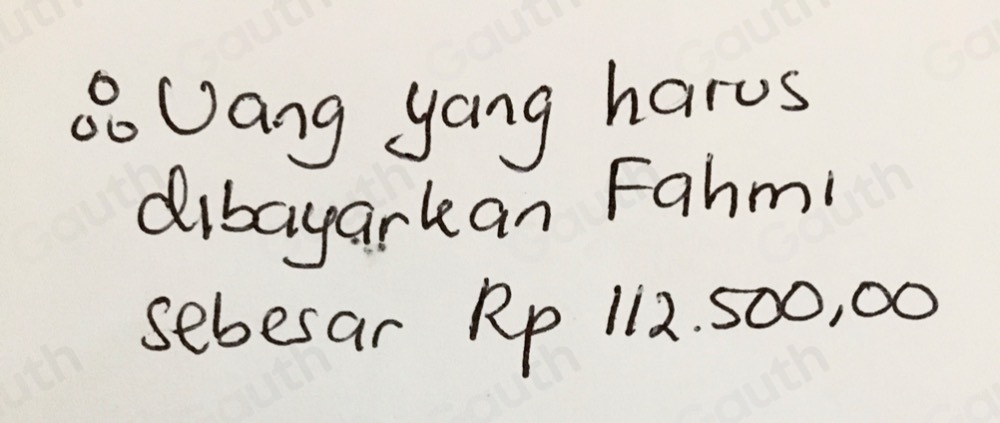 ∴ Uang yang harus
dibayarkan Fahmi
sebesar Rp 112.500,00